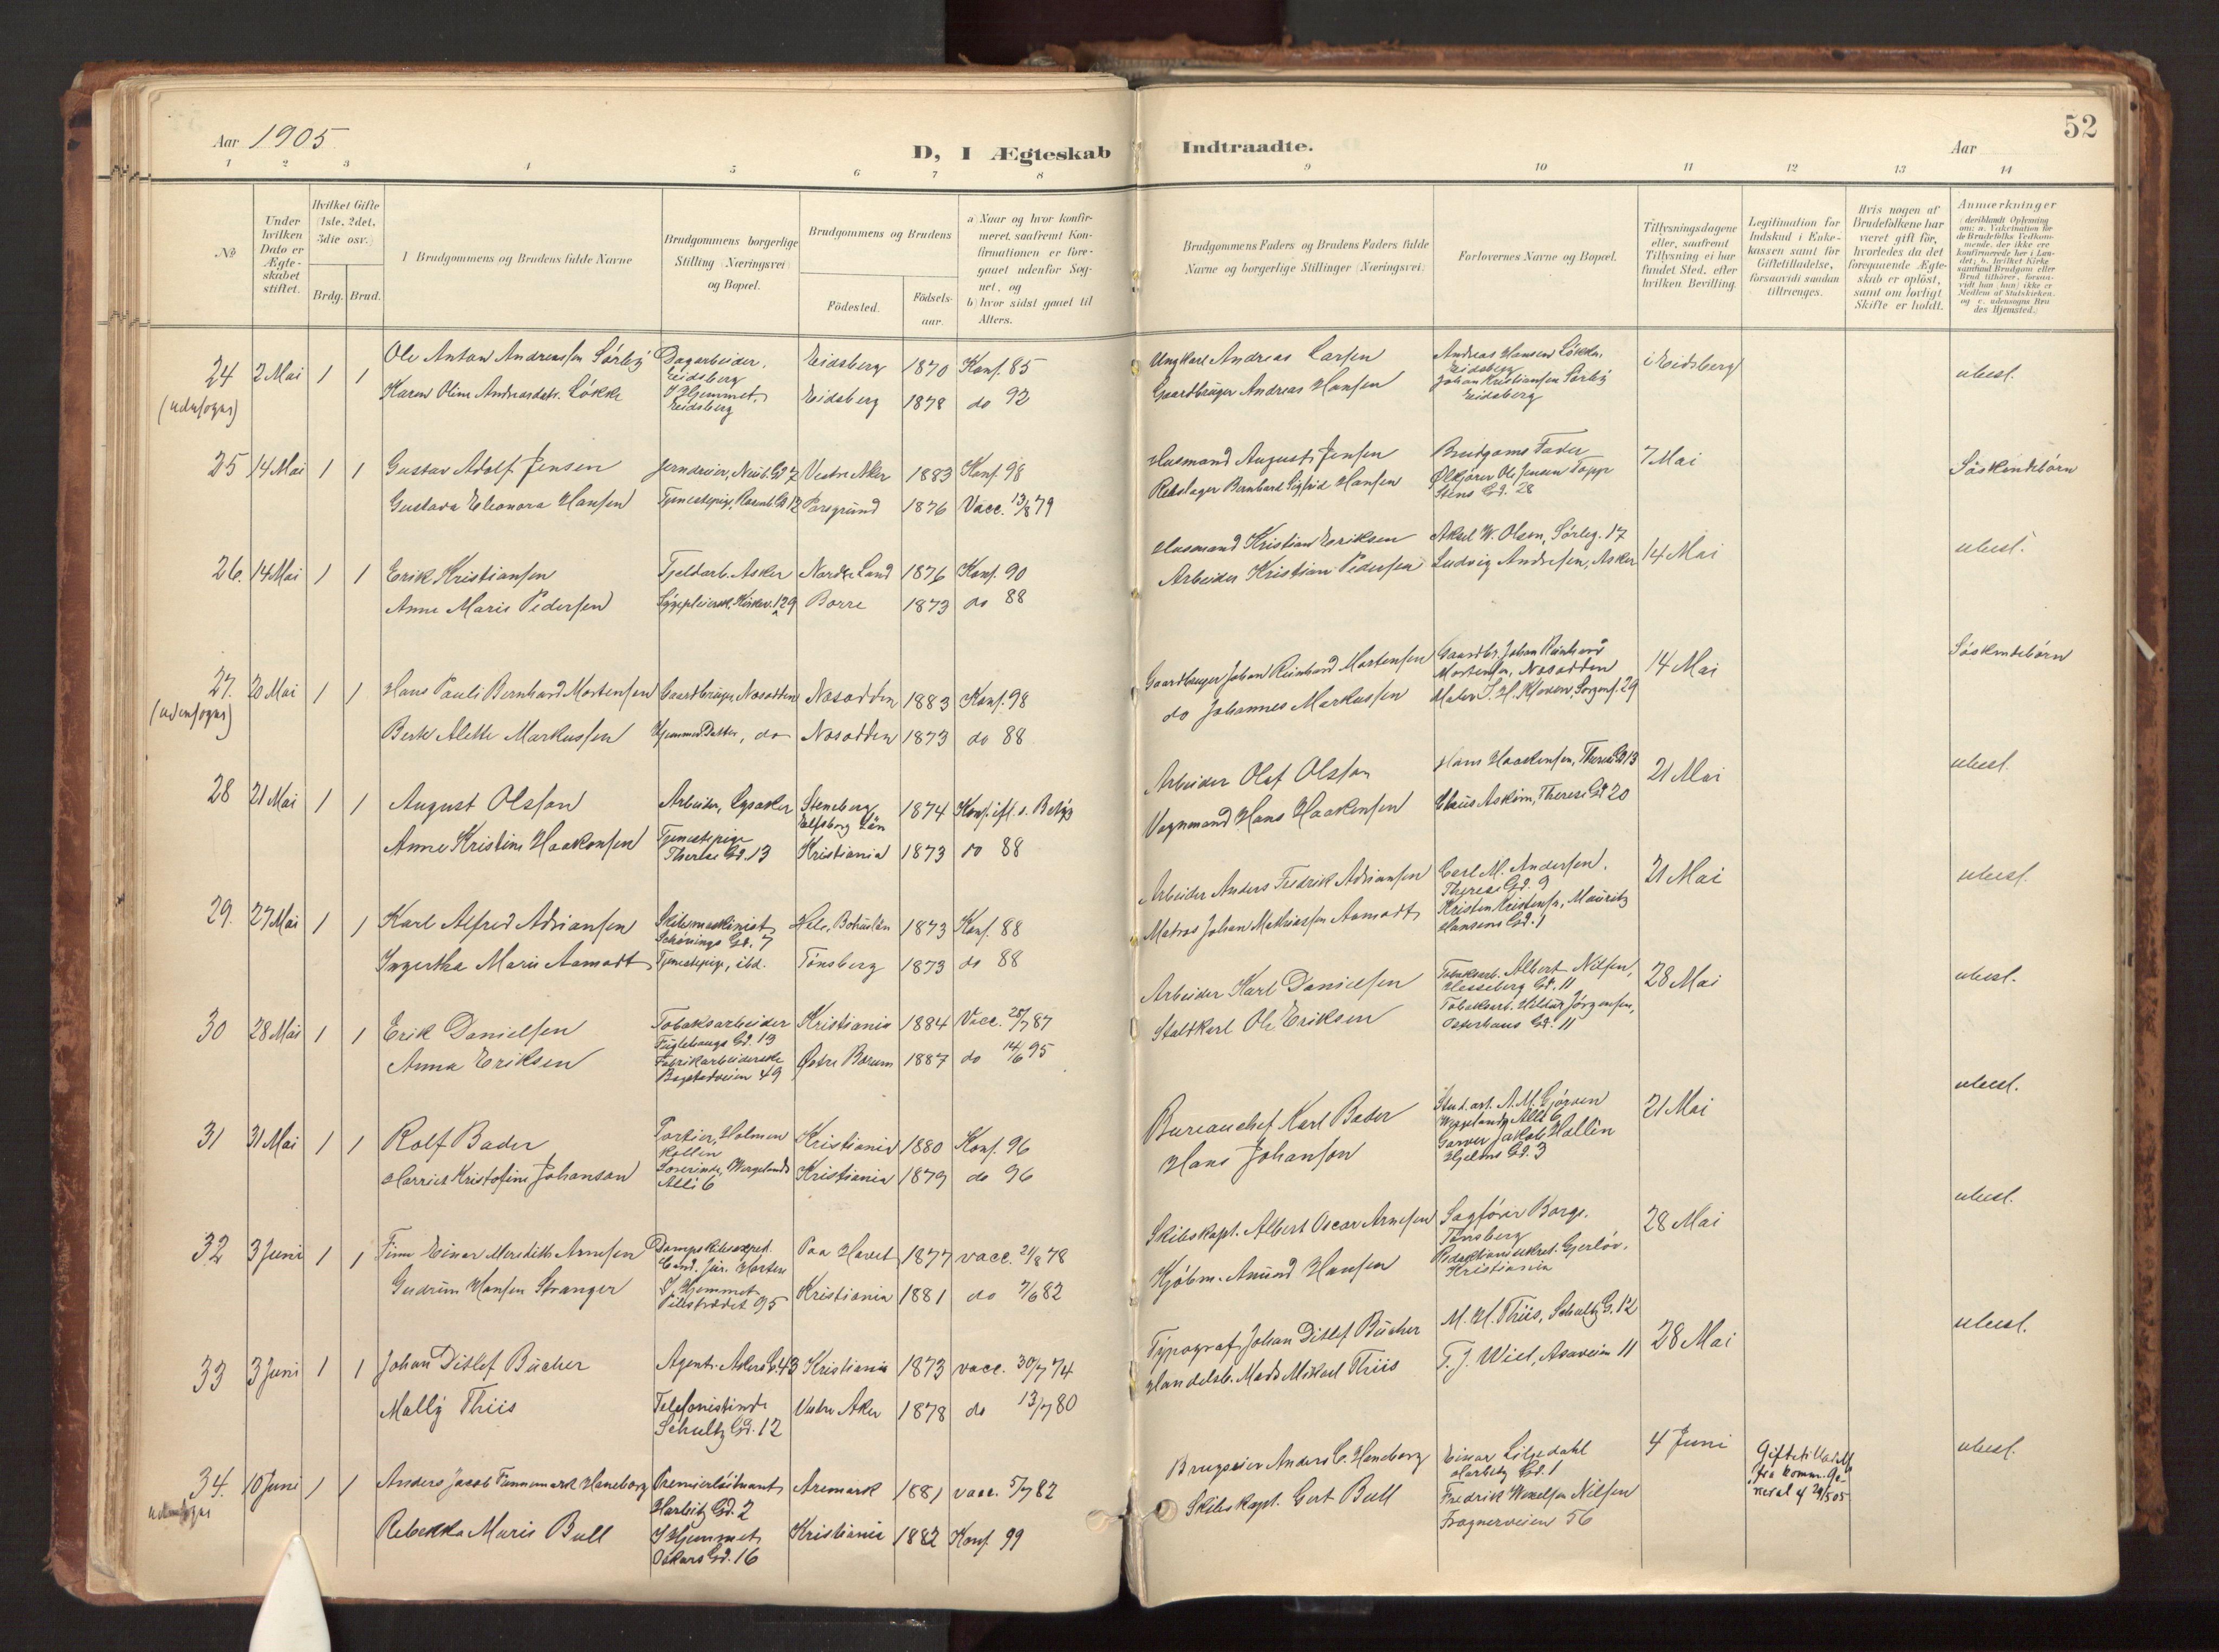 Aar 1905
D, I Ægteskab Indtraadte.
Aar
52
1 2 3 4 5 6 7 8 9 10 11 12 13 14
No
Under hvilken Dato er Ægteskabet stiftet.
Hvilket Gifte (1ste, 2det, 3die osv.)
Brdg. Brud.
Brudgommens og Brudens fulde Navne
Brudgommens borgerlige Stilling (Næringsvei) og Bopæl.
Brudgommens og Brudens
Födested.
Födselsaar.
a) Naar og hvor konfirmeret, saafremt Konfirmationen er foregaaet udenfor Sognet, og
b) hvor sidst gaaet til Alters.
Brudgommens Faders og Brudens Faders fulde Navne og borgerlige Stillinger (Næringsvei)
Forlovernes Navne og Bopæl.
Tillysningsdagene eller, saafremt Tillysning ei har fundet Sted, efter hvilken Bevilling.
Legitimation for Indskud i Enkekassen samt for Giftetilladelse, forsaavidt saadan tiltrænges.
Hvis nogen af Brudefolkene har været gift för, hvorledes da det foregaaende Ægteskab er oplöst, samt om lovligt Skifte er holdt.
Anmærkninger
24 2 Mai 1 1 Ole Anton Andreassen Sørby Dagarbeider, Eidsberg Eidsberg 1870 Konf. 85 Ungkarl Andreas Larsen Andreas Hansen Løkke, Eidsberg i Eidsberg ubesl.
(udensogns) Karen Oline Andreasdatr. Løkke I Hjemmet, Eidsberg Eidsberg 1878 do 92 Gaardbruger Andreas Hansen Johan Kristiansen Sørby Eidsberg
25 14 Mai 1 1 Gustav Adolf Jensen Jerndreier, Vestre Aker 1883 Konf 98 Husmand August Jensen Brudgoms Fader 7 Mai Söskendebörn
Gustava Eleonora Hansen Tjenestepige, Porsgrund 1876 Vacc. 13/8 79 Rebslager Bernhard Sigfrid Hansen Ølkjører Ole Jensen Stens Gd. 28
26. 14 Mai 1 1 Erik Kristiansen Asker Nordre Land 1876 Konf. 90 Husmand Kristian Eriksen Aksel W. Olsen, Sörbg. 17 14 Mai ubesl.
Anne Marie Pedersen Sygepleierske, Kirkev. 129 Borre 1873 do 88 Arbeider Kristian Pedersen Ludvig Andresen, Asker
27. 20 Mai 1 1 Hans Pauli Bernhard Mortensen Gaardbruger, Nesodden Nesodden 1883 Konf. 98 Gaardbruger Johan Reinhard Mortensen Gaardbr. Johan Reinhard Mortensen, Nesodden 14 Mai Söskendebörn
(udensogns) Berte Alette Markussen Hjemmed Datter, do Nesodden 1873 do 88 do Johannes Markussen Maler Sorgenf. 29
28 21 Mai 1 1 August Olsson Arbeider, Lysaker Elfsborg Län 1874 Arbeider Olof Olsson Hans Haakensen, Therese Gd 13 21 Mai ubesl.
Anne Kristine Haakensen Tjenestepige Therese Gd. 13 Kristiania 1873 do 88 Vognmand Hans Haakensen Askim, Therese Gd 20
29. 27 Mai 1 1 Karl Alfred Adriansen Skibsmaskinist Schönings Gd. 7 Bohuslän 1873 Konf. 88 Arbeider Anders Fredrik Adriansen Carl M. Andersen, Therese Gd. 9 21 Mai ubesl.
Ingertha Marie Aamodt Tjenestepige, ibd. Tönsberg 1873 do 88 Matros Johan Mathiassen Aamodt Kristen Kristensen, Mauritz Hansens Gd. 1
30 28 Mai 1 1 Erik Danielsen Tobaksarbeider Fuglehaugs Gd. 13 Kristiania 1884 Vacc. 28/7 87 Arbeider Karl Danielsen Tobaksarb. Albert Nilsen, Hesseberg Gd. 11 28 Mai ubesl.
Anna Eriksen Fabrikarbeiderske Bogstadveien 49 Østre Bærum 1887 do 14/6 95 Staldkarl Ole Eriksen Tobaksarb. Jörgensen, Osterhaus Gd. 11
31 31 Mai 1 1 Rolf Bader Portier, Holmenkollen Kristiania 1880 Konf. 96 Bureauchef Karl Bader Stud. art. Wergelands Alle 6 21 Mai ubesl.
Harriet Kristofine Johanson Wergelands Alle 6 Kristiania 1879 do 96 Hans Johanson Garver Jakob Hallén Hjelms Gd. 3
32 3 Juni 1 1 Finn Einar Meredith Arnesen Dampskibsexped. Cand. jur. Horten Paa Havet 1877 vacc. 21/8 78 Skibskapt. Albert Oscar Arnesen Sagfører Borge, Tønsberg 28 Mai ubesl.
Gudrun Hansen Stranger I Hjemmet Pilestrædet 95 Kristiania 1881 do 7/6 82 Kjöbm. Amund Hansen Redaktionssekret. Gjerlöv, Kristiania
33 3 Juni 1 1 Johan Ditlef Bücher Agent, Akersg 43 Kristiania 1873 vacc. 30/7 74 Typograf Johan Ditlef Bücher M. H. Thiis, Schultz G. 12 28 Mai ubesl.
Mally Thiis Telefonistinde Schultz Gd. 12 Vestre Aker 1878 do 13/7 80 Handelsb. Mads Mikael Thiis T. J. Wiel, Asaveien 11
34. 10 Juni 1 1 Anders Jacob Tannemark Haneborg Premierløitnant, Harbitz Gd. 2 Aremark 1881 vacc. 5/7 82 Brugseier Anders C. Haneborg Einar Liljedahl Harbitz Gd. 1 4 Juni Giftetilladelse fra komm. General af 29/5 05. ubesl.
udensogns Rebekka Marie Bull I Hjemmet, Oskars Gd. 16 Kristiania 1882 Konf. 99 Skibskapt. Gert Bull Fredrik Wexelsen Nilsen Frognerveien 56